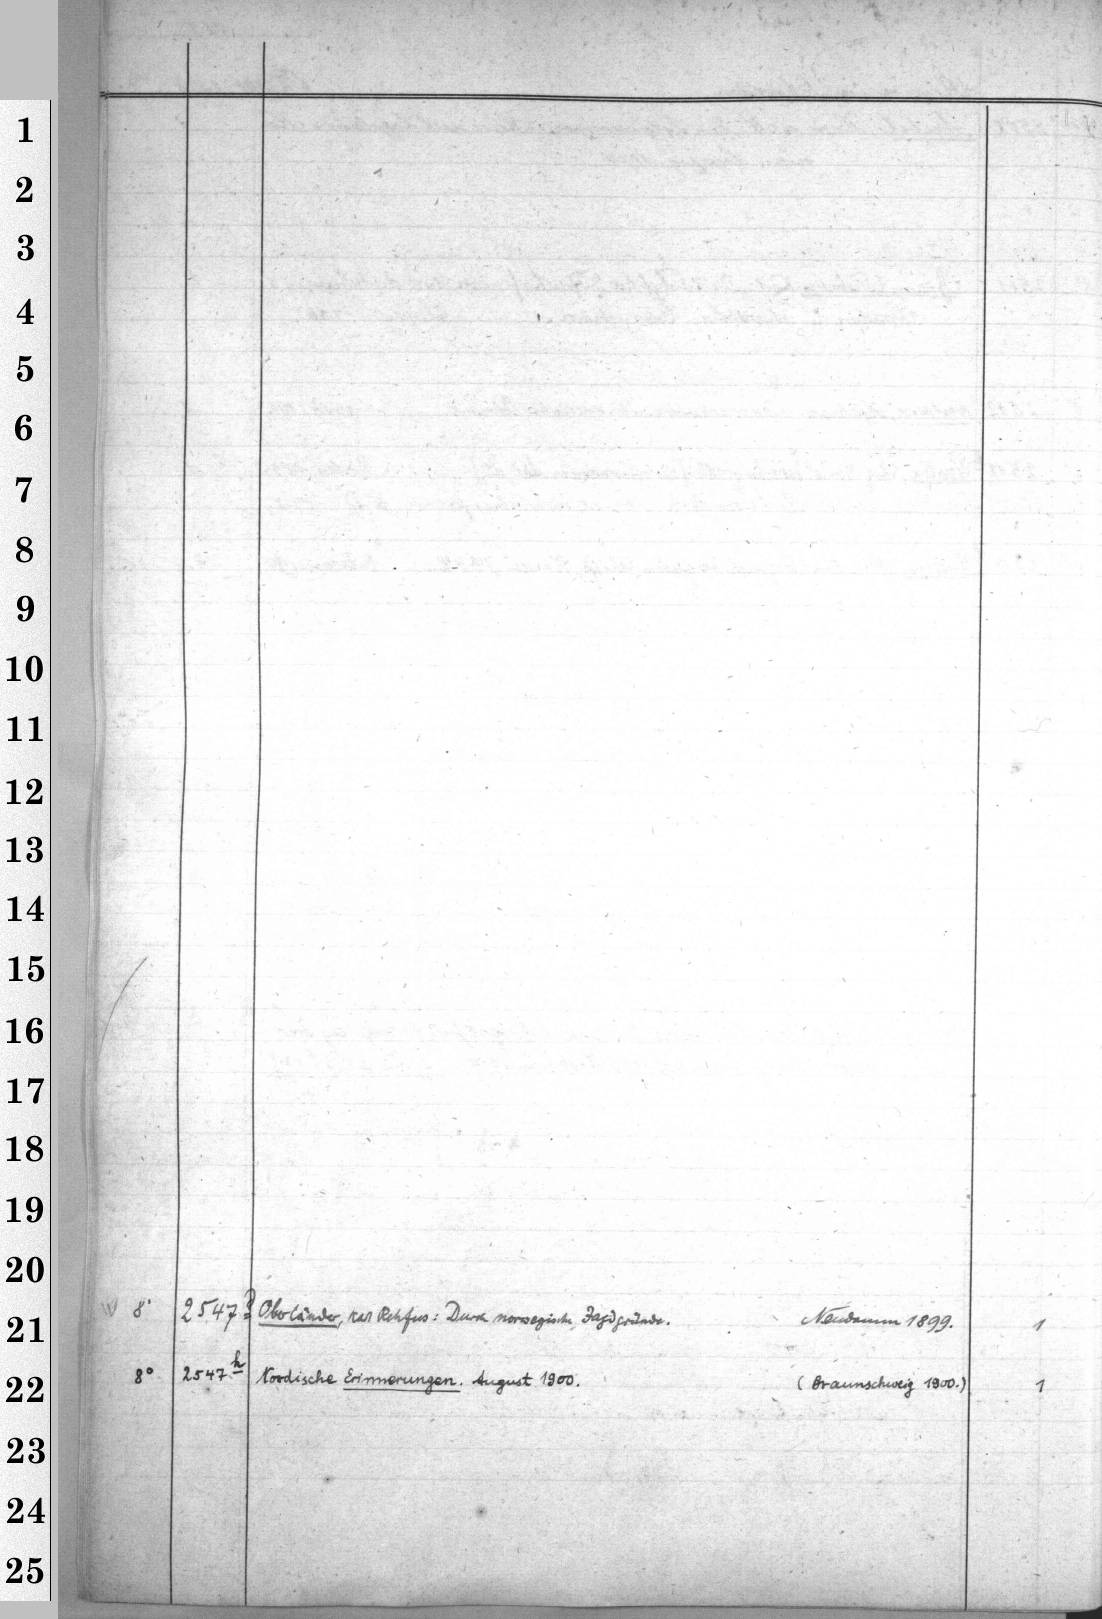 1
2
3
4
5
6
7
8
9
10
11
12
13
14
15
16
17
18
19
20
21
8° 2547 g Oberländer, Karl Rehfus: Durch norwegische Jagdgründe. Neudamm 1899. 1
22
8° 2547 h Nordische Erinnerungen. August 1900. (Braunschweig 1900.) 1
23
24
25